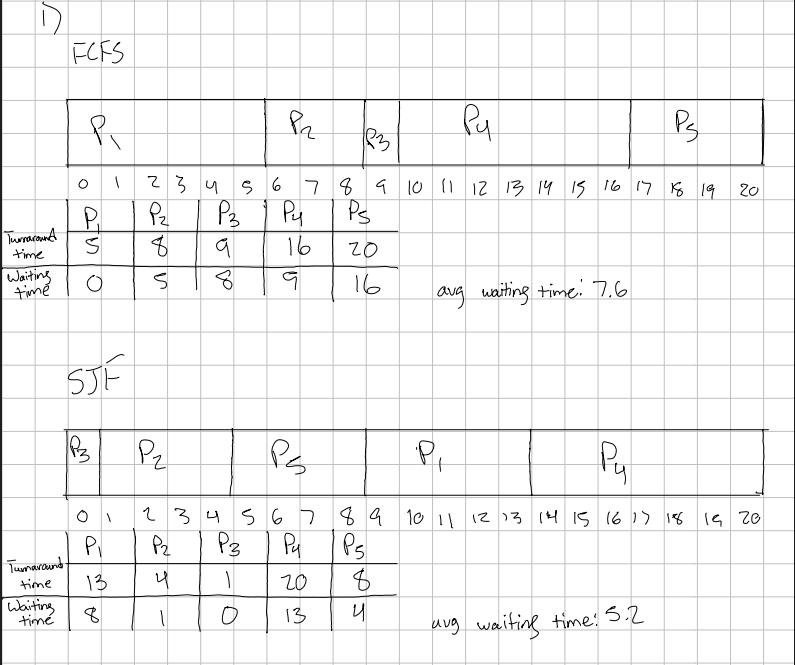 1)
FCFS
P1 P2 P3 P4 P5
0 1 2 3 4 5 6 7 8 9 10 11 12 13 14 15 16 17 18 19 20
P1 P2 P3 P4 P5
Turnaround time 5 8 9 16 20
Waiting time 0 5 8 9 16
avg waiting time: 7.6
SJF
P3 P2 P5 P1 P4
0 1 2 3 4 5 6 7 8 9 10 11 12 13 14 15 16 17 18 19 20
P1 P2 P3 P4 P5
Turnaround time 13 4 1 20 8
Waiting time 8 1 0 13 4
avg waiting time: 5.2